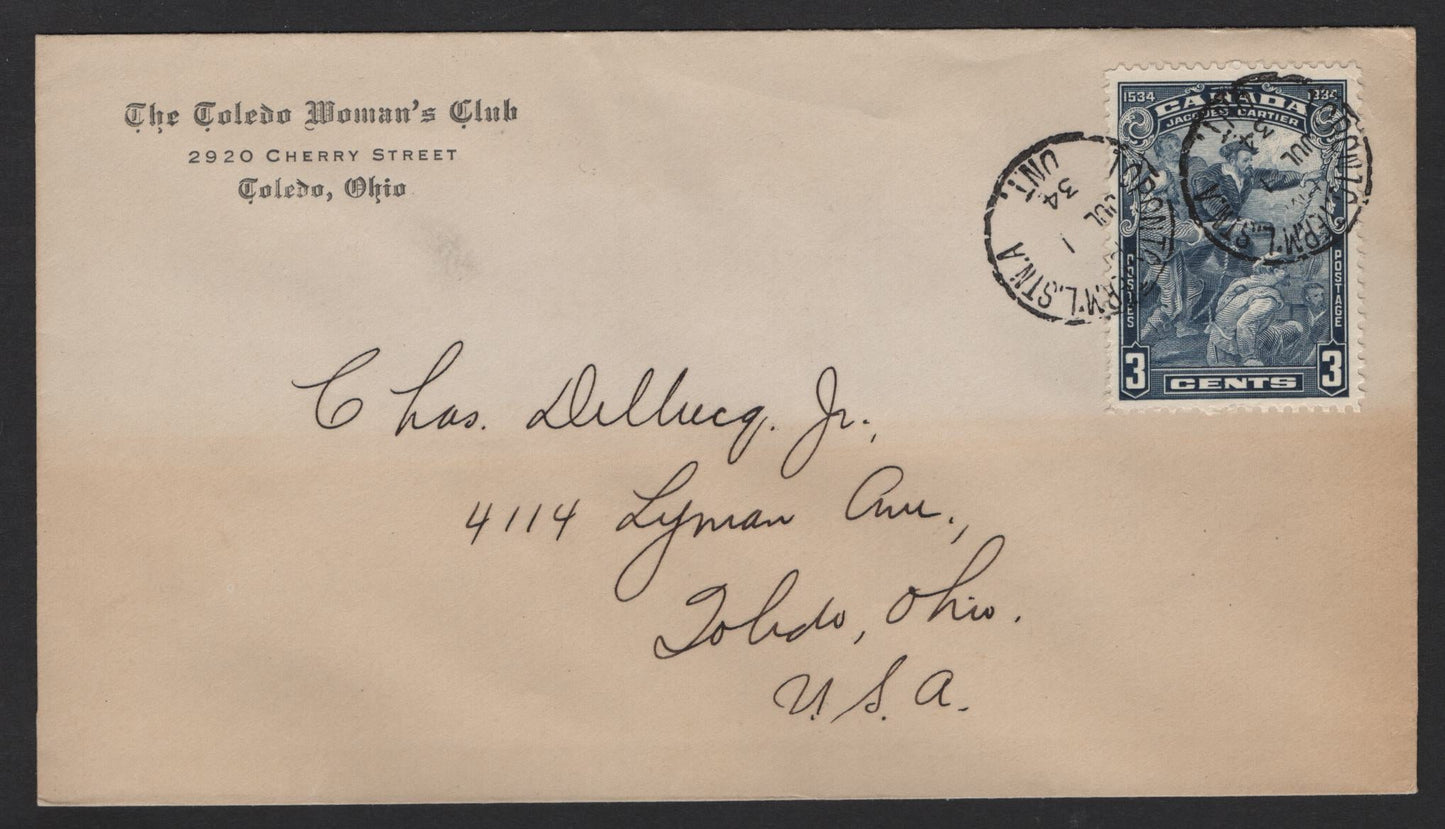 The Toledo Woman's Club
2920 CHERRY STREET
Toledo, Ohio
1534 CANADA 1934
JACQUES CARTIER
POSTES POSTAGE
3 CENTS 3
TORONTO TERM'L.STN.A
JUL 1
34
ONT.
TORONTO TERM'L.STN.A
JUL 1
34
Chas. Delbecq. Jr.,
4114 Lyman Ave.,
Toledo, Ohio.
U.S.A.